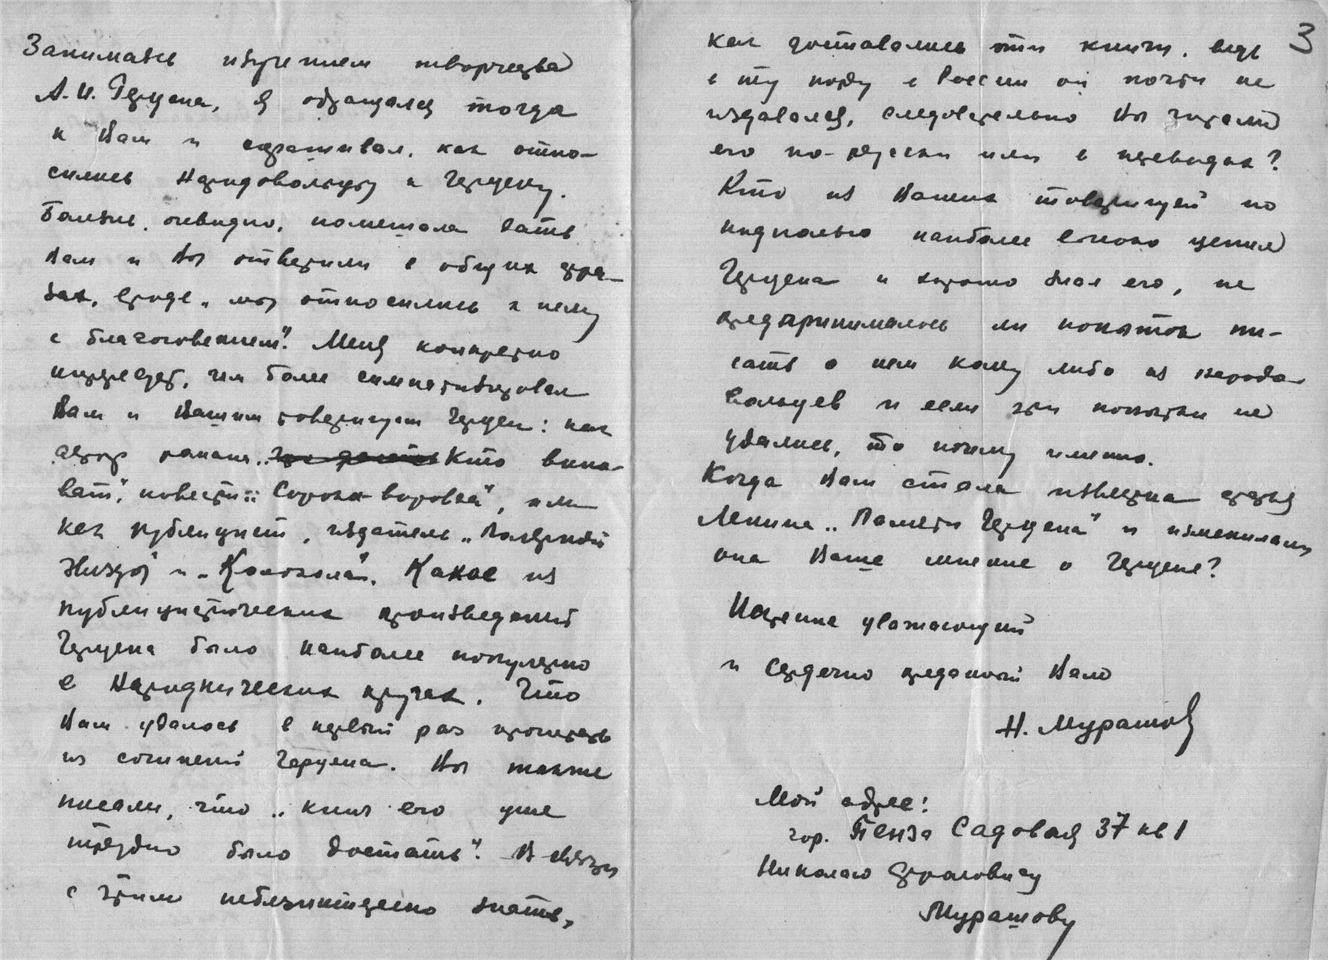 Занимаясь изучением творчества
А.И. Герцена, я обращался тогда
к Вам и спрашивал, как отно-
сились Народовольцы к Герцену.
Болезнь, очевидно, помешала дать
Вам и Вы ответили в общих фра-
зах, вроде „мы относились к нему
с благоговением". Меня конкретно
интересует, чем более симпатизировал
Вам и Вашим товарищам Герцен: как
автор романа „Кто вино-
ват", повести: „Сорока воровка", или
как публицист, издатель „Полярной
Звезды" и „Колокола". Какое из
публицистических произведений
Герцена было наиболее популярно
в Народнических кругах. Что
Вам удалось в первый раз прочитать
из сочинений Герцена. Вы также
писали, что „книг его уже
трудно было достать". В связи
с этим небезинтересно знать,
3
как доставались эти книги, ведь
в ту пору в России он почти не
издавался, следовательно Вы читали
его по-русски или в переводах?
Кто из Ваших товарищей по
подполью наиболее высоко ценил
Герцена и хорошо знал его, не
предпринималось ли попыток пи-
сать о нем кому либо из народо-
вольцев и если эти попытки не
удались, то почему именно.
Когда Вам стала известна статья
Ленина „Памяти Герцена" и изменила ли
она Ваше мнение о Герцене?
Искренне уважающий
и сердечно преданный Вам
Н. Мурашов
Мой адрес:
гор. Пенза Садовая 37 кв 1
Николаю
Мурашову